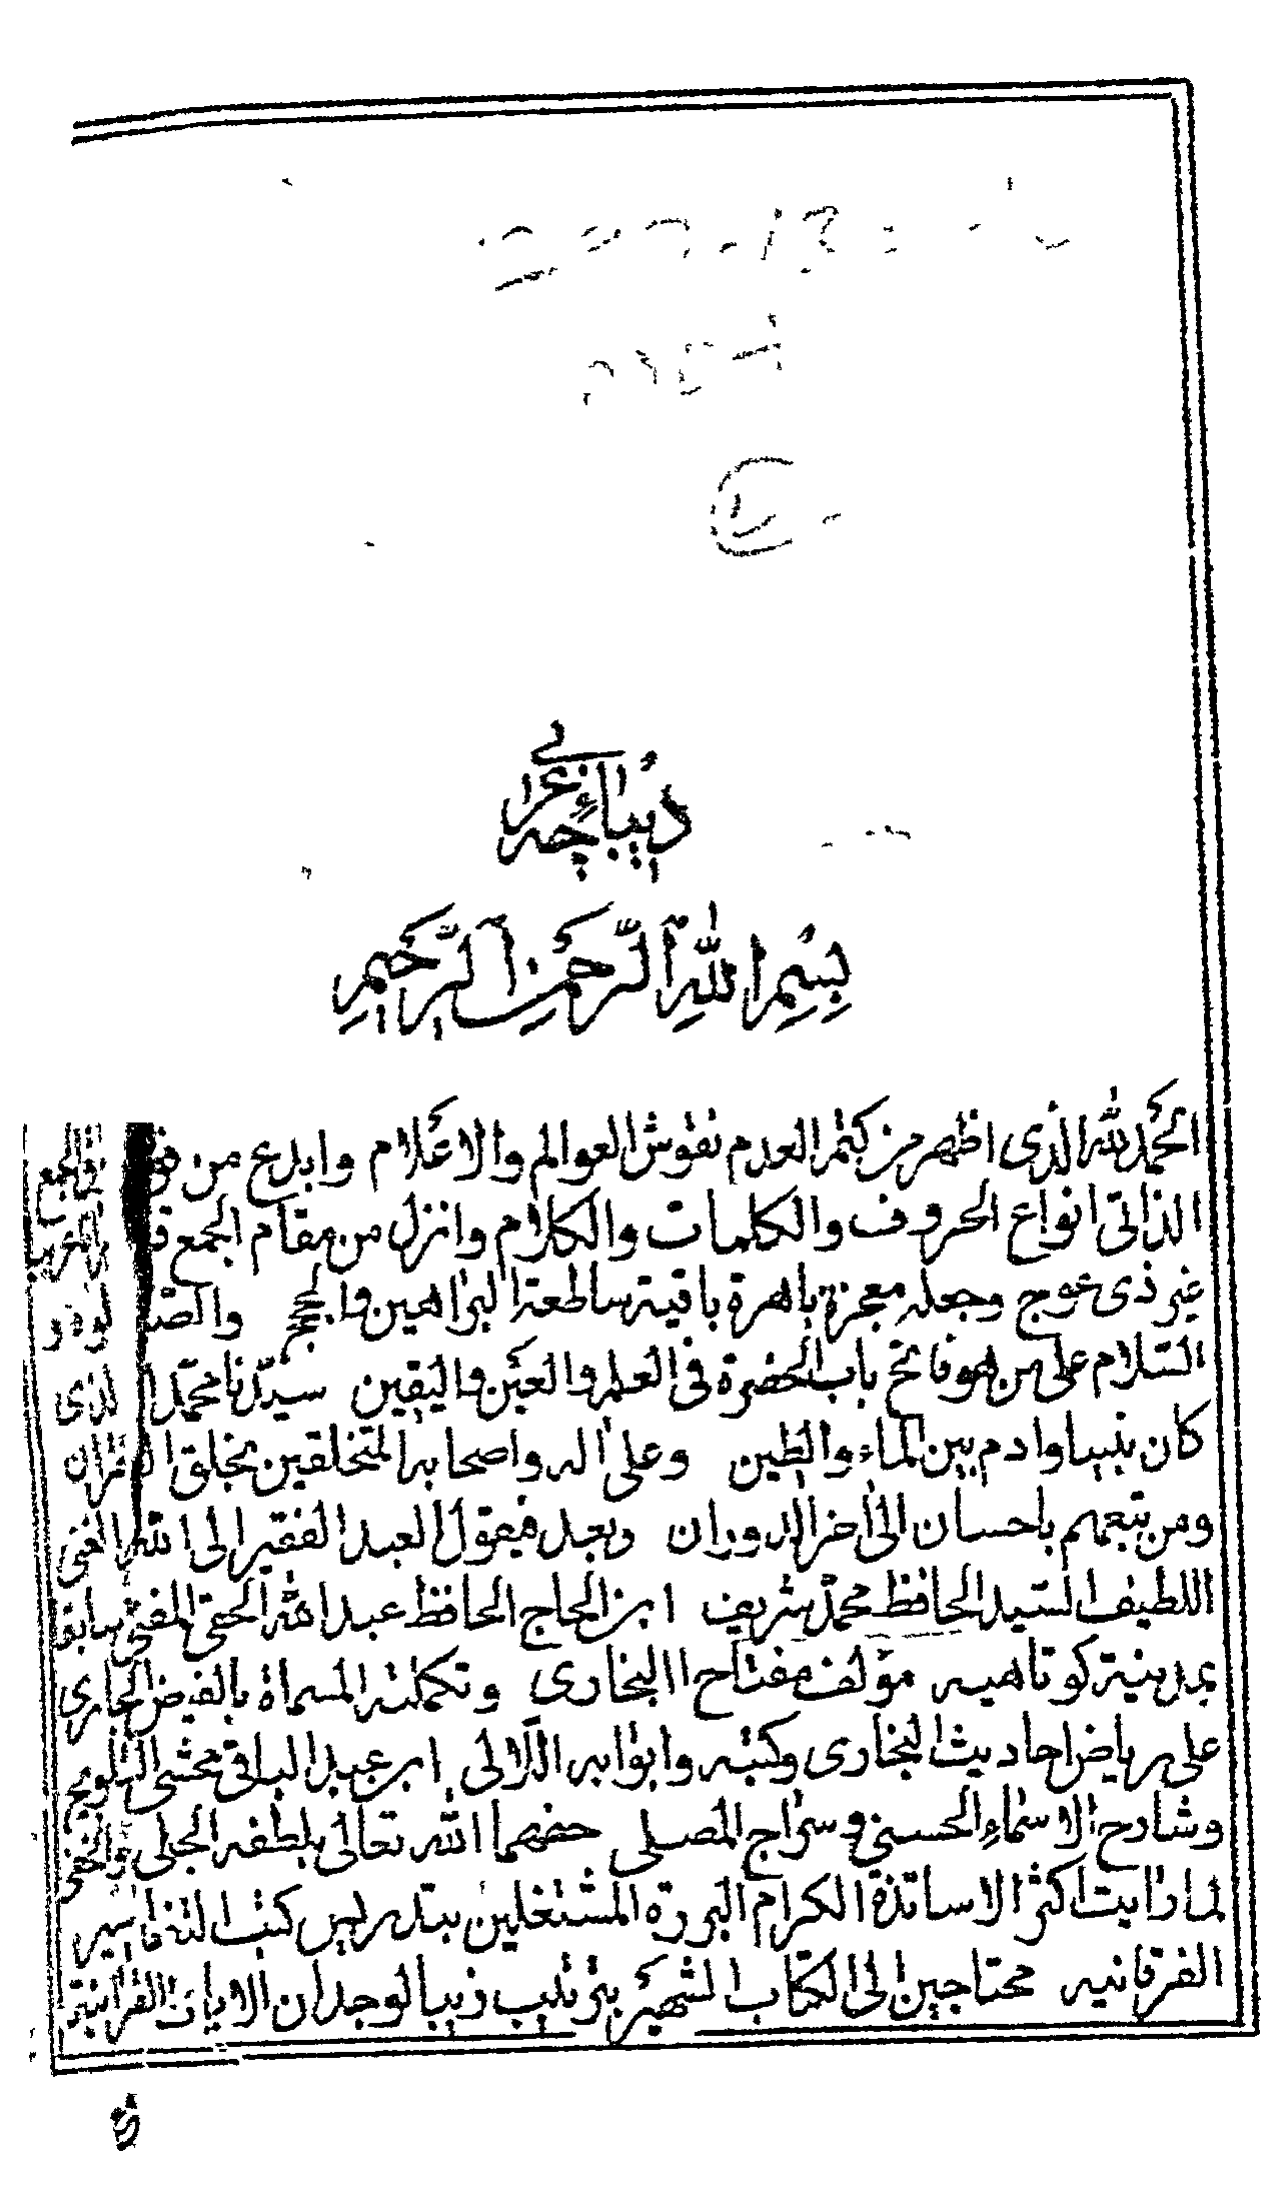 ديباجۀ عربى
بِسْمِ اللّٰهِ الرَّحْمٰنِ الرَّحِيمِ
الحمد لله الذى اظهر من كتم العدم نقوش العوالم والاعلام وابدع من الجمع
الذاتى انواع الحروف والكلمات والكلام وانزل من مقام الجمع
غير ذى عوج وجعله معجزة باهرة باقية ساطعة البراهين والحجج
السلام على من هو فاتح باب الحضرة فى العلم والعين واليقين سيدنا محمد الذى
كان نبيا وادم بين الماء والطين وعلى اله واصحابه المتخلقين بخلق القران
ومن تبعهم باحسان الى اخر الدوران وبعد فيقول العبد الفقير الى الله الغنى
اللطيف السيد الحافظ محمد شريف ابن الحاج الحافظ عبد الله الحقى المفتى سابقا
بمدينة كوتاهيه مؤلف مفتاح البخارى وتكملته المسماة بالفيض الجارى
على رياض احاديث البخارى وكتبه وابوابه اللآلى ابن عبد الباقى محشى التلويح
وشارح الاسماء الحسنى وسراج المصلى حفهما الله تعالى بلطفه الجلى والخفى
لما رايت اكثر الاساتذة الكرام البررة المشتغلين بتدريس كتب التفاسير
الفرقانيه محتاجين الى الكتاب الشهير بترتيب زيبا لوجدان الايات القرانية